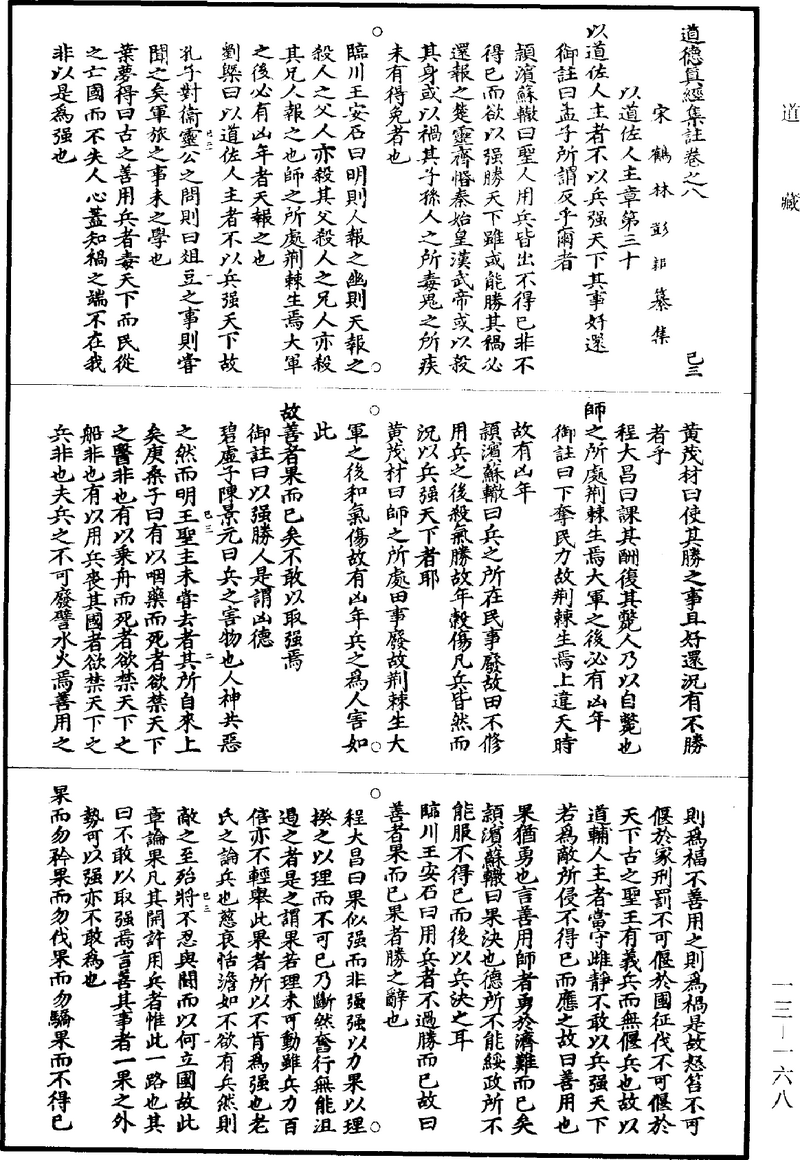 道藏
道德真經集註卷之八
己三
宋鶴林彭耜纂集
以道佐人主章第三十
以道佐人主者不以兵强天下其事好還
御註曰孟子所謂反乎爾者
潁濱蘇轍曰聖人用兵皆出不得已非不
得已而欲以强勝天下雖或能勝其禍必
還報之楚靈齊愍秦始皇漢武帝或以殺
其身或以禍其子孫人之所毒鬼之所疾
未有得免者也
臨川王安石曰明則人報之幽則天報之
殺人之父人亦殺其父殺人之兄人亦殺
其兄人報之也師之所處荆棘生焉大軍
之後必有凶年者天報之也
劉槩曰以道佐人主者不以兵强天下故
孔子對衞靈公之問則曰俎豆之事則嘗
聞之矣軍旅之事未之學也
葉夢得曰古之善用兵者毒天下而民從
之亡國而不失人心蓋知禍之端不在我
非以是爲强也
黄茂材曰使其勝之事且好還況有不勝
者乎
程大昌曰課其酬復其斃人乃以自斃也
師之所處荆棘生焉大軍之後必有凶年
御註曰下奪民力故荆棘生焉上違天時
故有凶年
潁濱蘇轍曰兵之所在民事廢故田不修
用兵之後殺氣勝故年穀傷凡兵皆然而
況以兵强天下者耶
黄茂材曰師之所處田事廢故荆棘生大
軍之後和氣傷故有凶年兵之爲人害如
此
故善者果而已矣不敢以取强焉
御註曰以强勝人是謂凶德
碧虚子陳景元曰兵之害物也人神共惡
之然而明王聖主未嘗去者其所自來上
矣庚桑子曰有以咽藥而死者欲禁天下
之醫非也有以乘舟而死者欲禁天下之
船非也有以用兵喪其國者欲禁天下之
兵非也夫兵之不可廢譬水火焉善用之
則爲福不善用之則爲禍是故怒笞不可
偃於家刑罰不可偃於國征伐不可偃於
天下古之聖王有義兵而無偃兵也故以
道輔人主者當守雌靜不敢以兵强天下
若爲敵所侵不得已而應之故曰善用也
果猶勇也言善用師者勇於濟難而已矣
潁濱蘇轍曰果決也德所不能綏政所不
能服不得已而後以兵決之耳
臨川王安石曰用兵者不過勝而已故曰
善者果而已果者勝之辭也
程大昌曰果似强而非强强以力果以理
揆之以理而不可已乃斷然奮行無能沮
遏之者是之謂果若理未可動雖兵力百
倍亦不輕舉此果者所以不肯爲强也老
氏之論兵也慈哀恬澹如不欲有兵然則
敵之至殆將不忍與鬬而以何立國故此
章論果凡其開許用兵者惟此一路也其
曰不敢以取强焉言善其事者一果之外
勢可以强亦不敢爲也
果而勿矜果而勿伐果而勿驕果而不得已
己三 一
己三 二
己三
一三—一六八